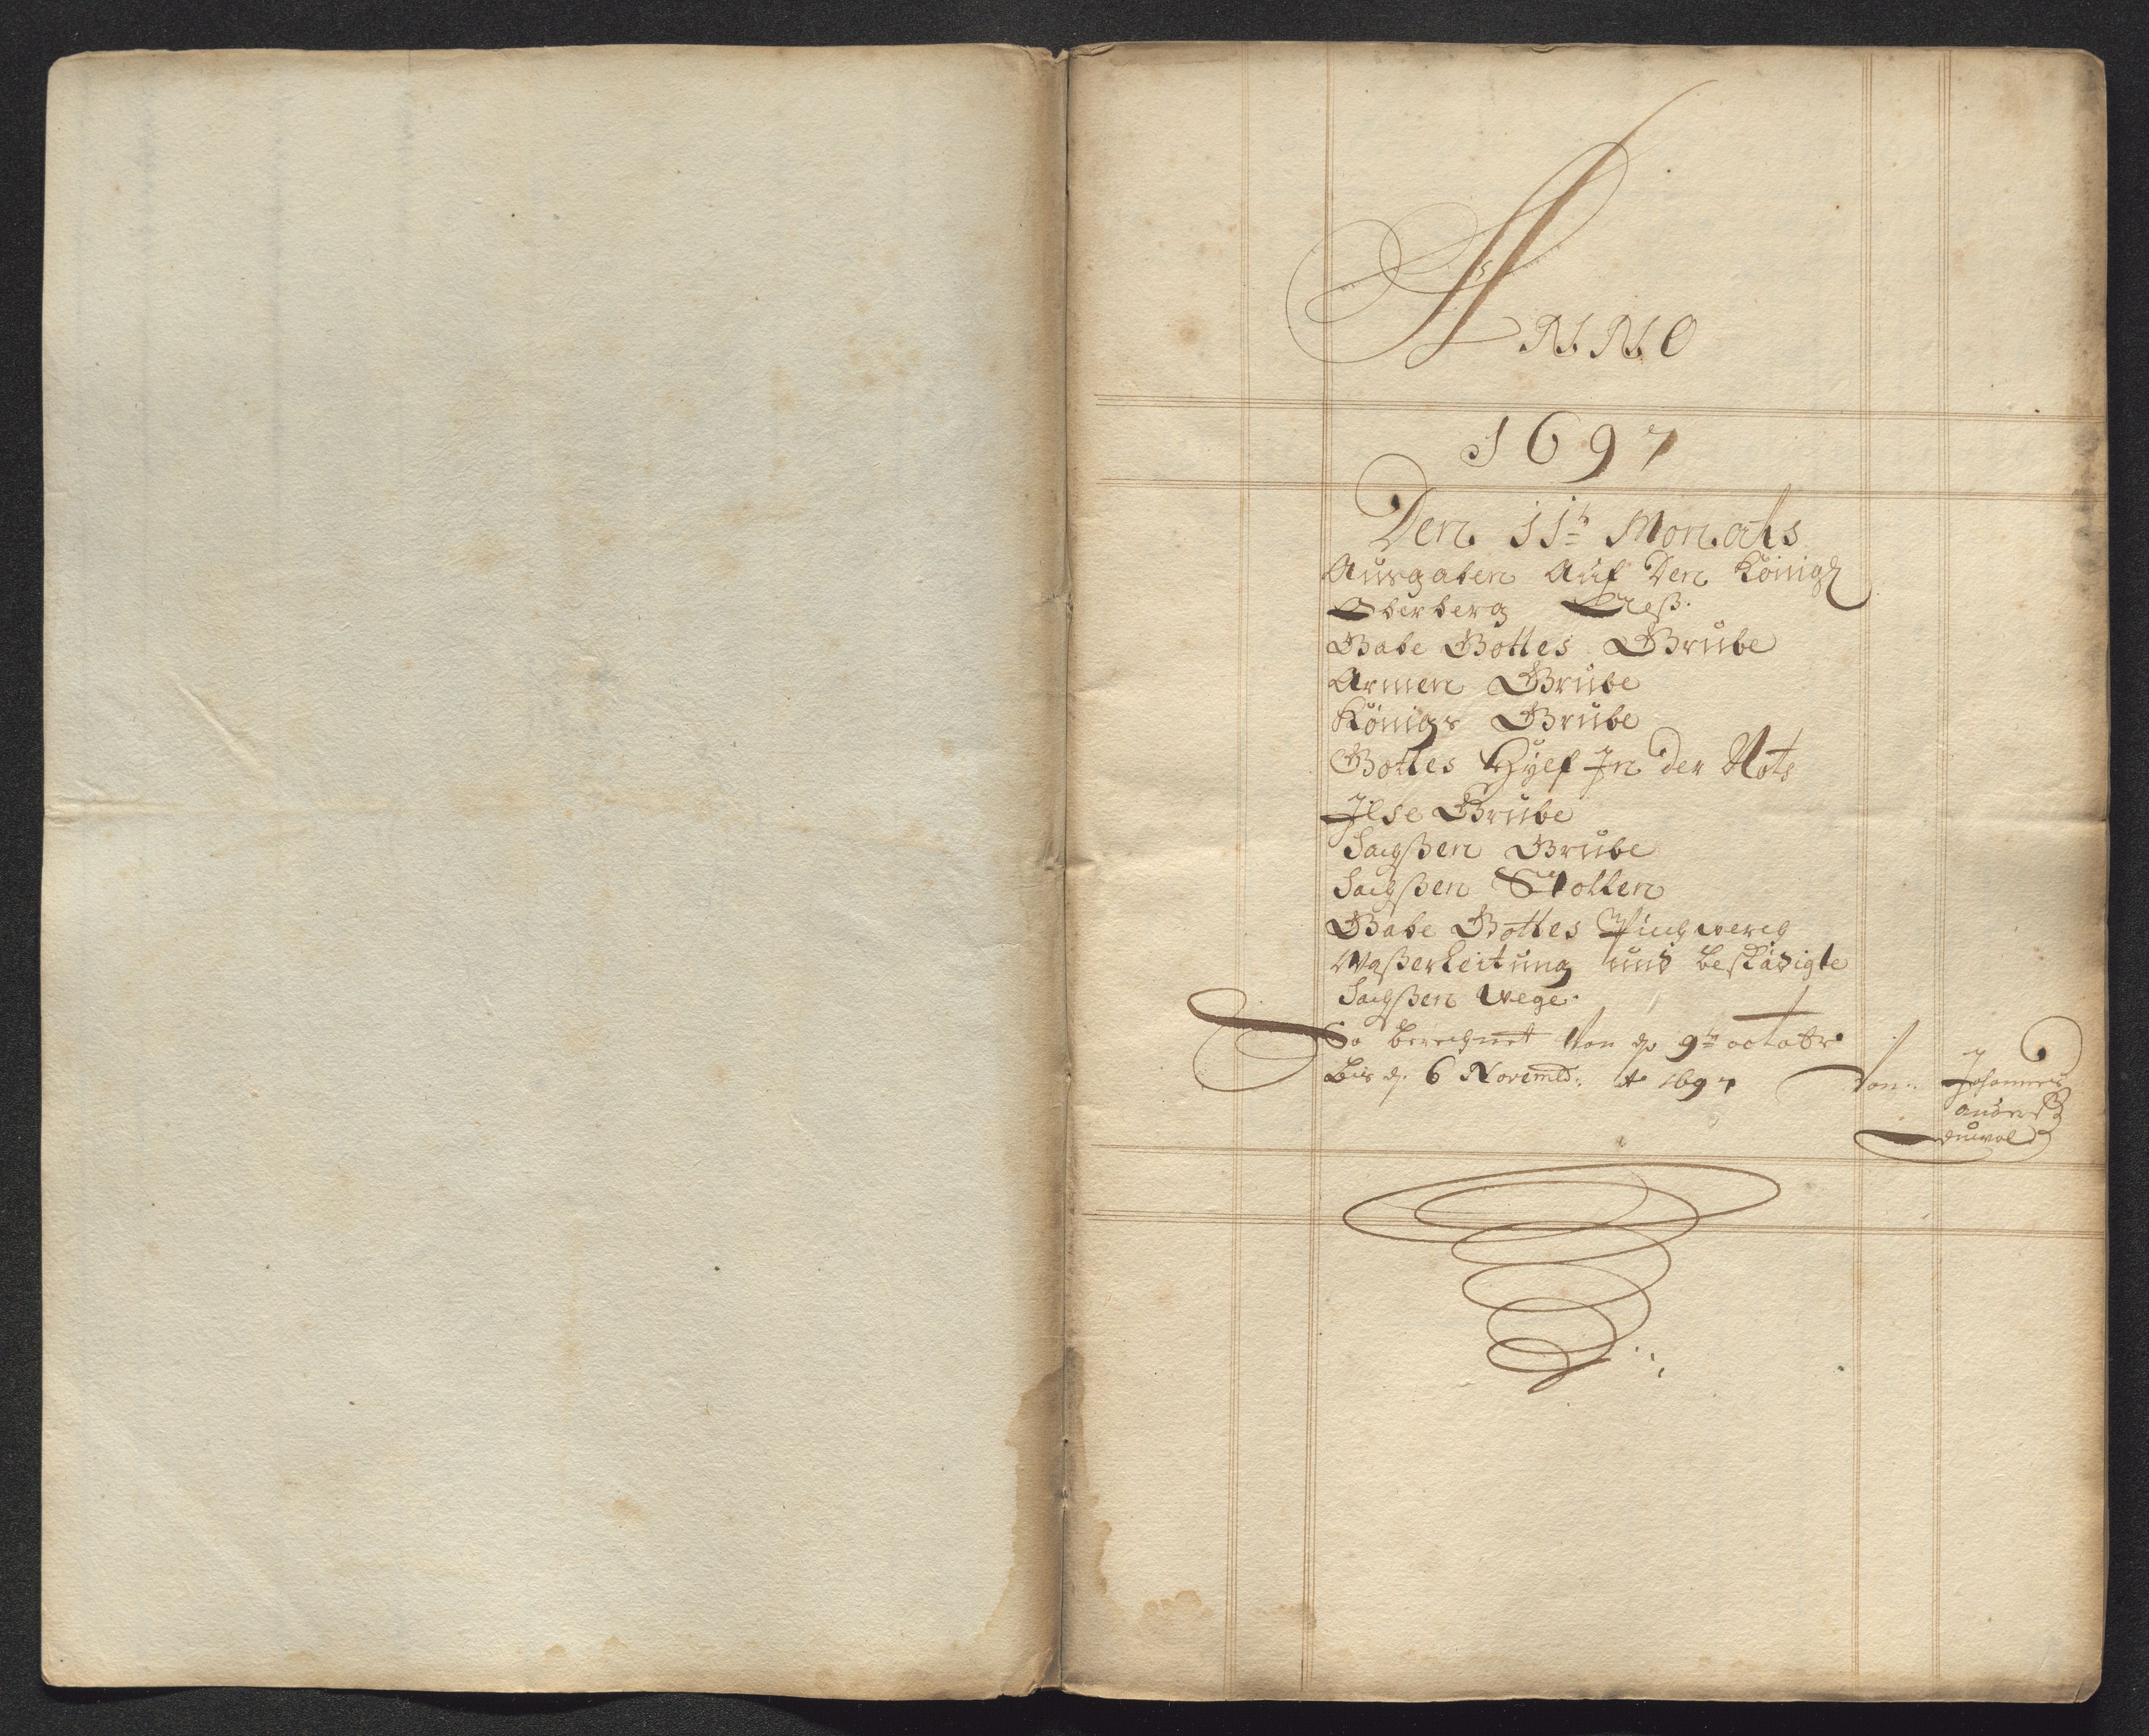 ANNO
1697
Den 11t Monats
Ausgaben Auf Den Königl
Oberberg
Gabe Gottes Grube
Armen Grube
Königs Grube
Gottes Hülf In der Noht
Ilse Grube
Sachßen Grube
Sachßen Stollen
Gabe Gottes Puchwerch
Waßerleitung und
Sachßen Wege.
So berechnet Von d. 9t octobr
Bis d. 6 Novemb: Ao 1697 Von: Johannes
Anders